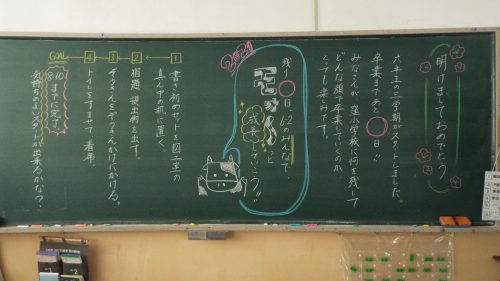 明けましておめでとう
六年生の三学期がスタートしました。
卒業まであと 日!!
みなさんが 窪小学校に何を残して
どんな顔で卒業していくのか
とても楽しみです。
2021
残り 日、6-2のみんなで、
もっと
成長しよう!!
1
書き初めのセットを図工室の
真ん中の机に置く。
2
宿題、提出物を出す。
3
ぞうきんをぞうきんかけにかける。
4
トイレをすませて 着席。
GOAL
8:10までに完了!
気持ちのよいスタートが出来るかな?